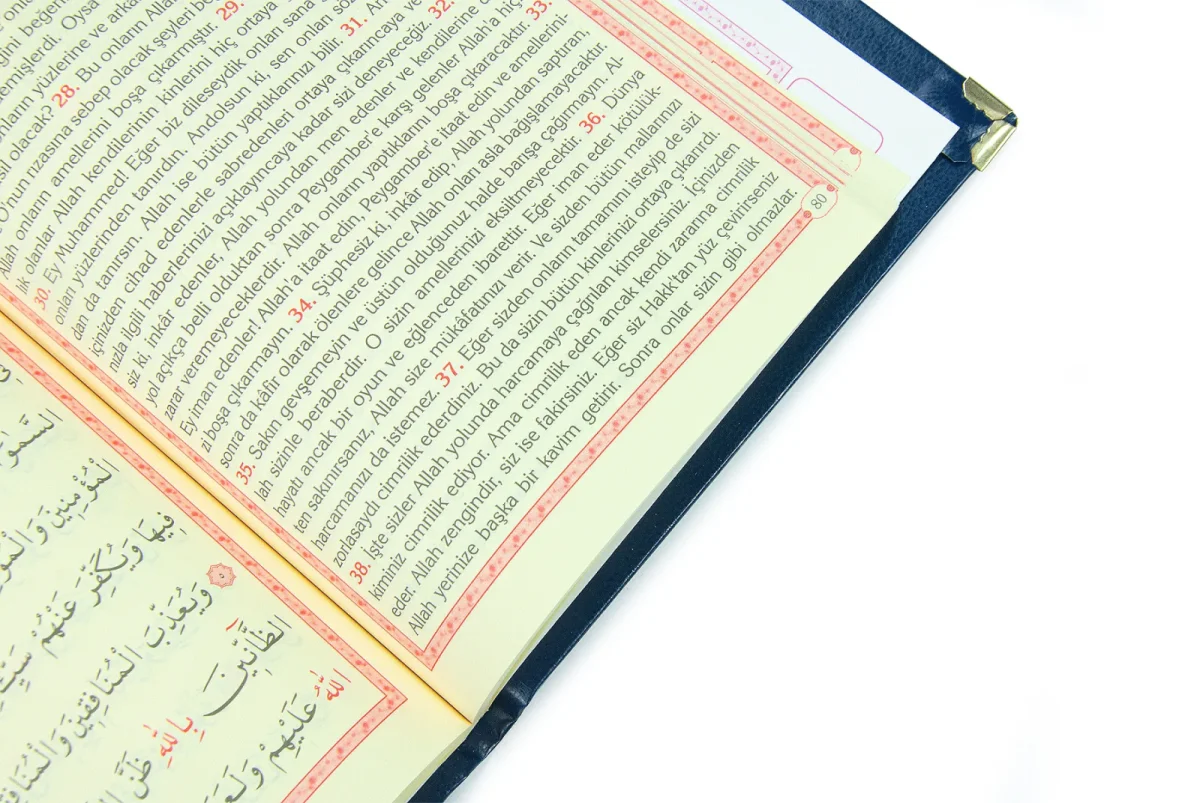 ğini beğenm
emişlerdi. Oysa
nların yüzlerine ve arka
asıl olacak? 28. Bu onların Allah
O'nun rızasına sebep olacak şeyleri be
Allah onların amellerini boşa çıkarmıştır. 29.
lik olanlar Allah kendilerinin kinlerini hiç ortaya
30. Ey Muhammed! Eğer biz dileseydik onları sana
onları yüzlerinden tanırdın. Andolsun ki, sen onları sö
dar da tanırsın. Allah ise bütün yaptıklarınızı bilir. 31. An
çinizden cihad edenlerle sabredenleri ortaya çıkarıncaya ve
nızla ilgili haberlerinizi açıklayıncaya kadar sizi deneyeceğiz. 32.
siz ki, inkâr edenler, Allah yolundan men edenler ve kendilerine
yol açıkça belli olduktan sonra Peygamber'e karşı gelenler Allah'a hiç
zarar veremeyeceklerdir. Allah onların yaptıklarını boşa çıkaracaktır. 33.
Ey iman edenler! Allah'a itaat edin, Peygamber'e itaat edin ve amellerini-
zi boşa çıkarmayın. 34. Şüphesiz ki, inkâr edip, Allah yolundan sapuran,
sonra da kâfir olarak ölenlere gelince Allah onları asla bağışlamayacaktır.
35. Sakın gevşemeyin ve üstün olduğunuz halde barışa çağırmayın. Al-
lah sizinle beraberdir. O sizin amellerinizi eksiltmeyecektir. 36. Dünya
hayatı ancak bir oyun ve eğlenceden ibarettir. Eğer iman eder kötülük-
ten sakınırsanız, Allah size mükâfatınızı verir. Ve sizden bütün mallarınızı
harcamanızı da istemez. 37. Eğer sizden onların tamamını isteyip de sizi
zorlasaydı cimrilik ederdiniz. Bu da sizin bütün kinlerinizi ortaya çıkarırdı.
38. İşte sizler Allah yolunda harcamaya çağrılan kimselersiniz. İçinizden
kiminiz cimrilik ediyor. Ama cimrilik eden ancak kendi zararına cimrilik
eder. Allah zengindir, siz ise fakirsiniz. Eğer siz Hakk'tan yüz çevirirseniz
Allah yerinize başka bir kavim getirir. Sonra onlar sizin gibi olmazlar.
80
فِى
السَّمٰوَ
الْمُؤْمِنٖينَ وَالْمُؤْ
فٖيهَا وَيُكَفِّرَ عَنْهُمْ سَيِّ
٥ وَيُعَذِّبَ الْمُنَافِقٖينَ وَالْمُنَافِقَ
الظَّٓانّٖينَ بِاللّٰهِ ظَنَّ
اللّٰهُ عَلَيْهِمْ وَلَعَ